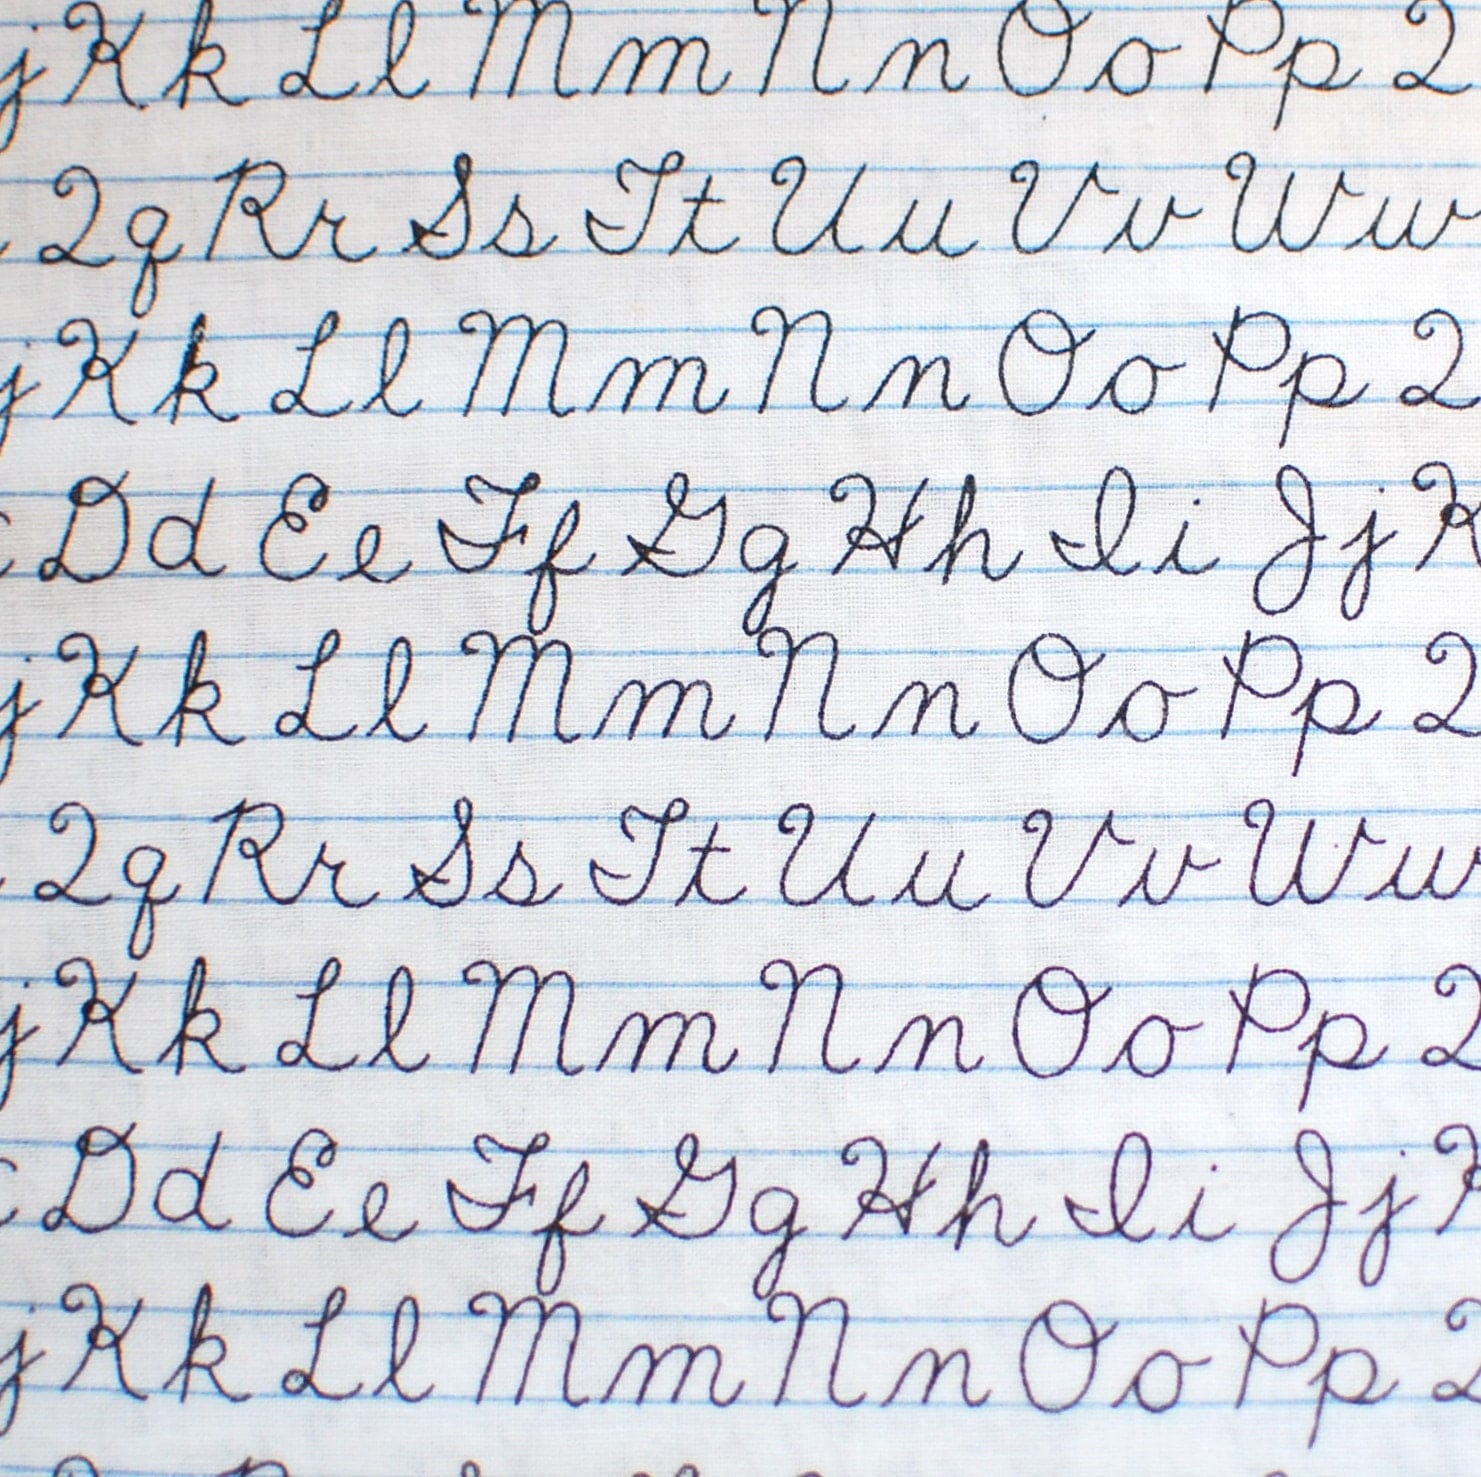 j Kk Ll Mm Nn Oo Pp Q
Qq Rr Ss Tt Uu Vv Ww
j Kk Ll Mm Nn Oo Pp Q
c Dd Ee Ff Gg Hh Ii Jj K
j Kk Ll Mm Nn Oo Pp Q
Qq Rr Ss Tt Uu Vv Ww
j Kk Ll Mm Nn Oo Pp Q
c Dd Ee Ff Gg Hh Ii Jj K
j Kk Ll Mm Nn Oo Pp Q